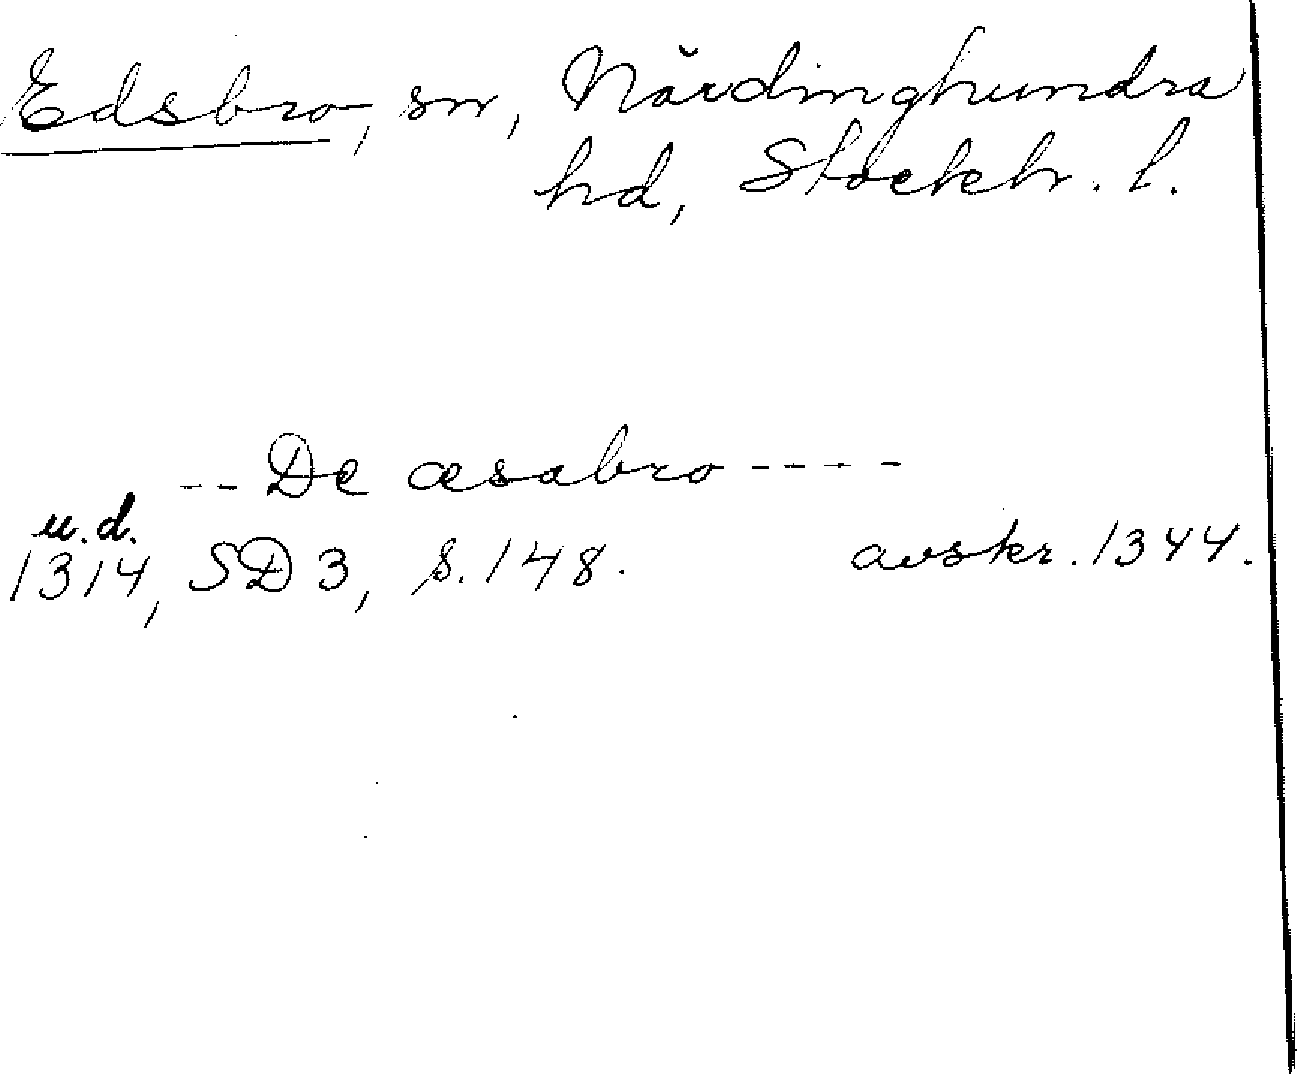 Edsbro, sn, Närdinghundra
hd, Stockh. l.
-- De æsabro ----
u.d.
1314, SD 3, s. 148. avskr. 1344.